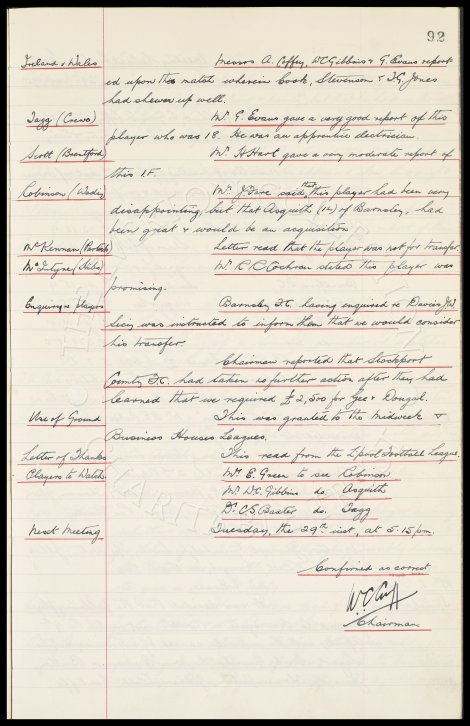 92
Ireland v Wales Messrs A. Coffey, W.C. Gibbins & G. Evans report
ed upon this match wherein Cook, Stevenson & T.G. Jones
had shewn up well.
Tagg (Crewe) Mr. G. Evans gave a very good report of this
player who was 18. He was an apprentice electrician.
Scott (Brentford) Mr. H. Hart gave a very moderate report of
this I.F.
Robinson Mr. J. Fare said that this player had been very
disappointing but that Asquith (I.L.) of Barnsley, had
been great & would be an acquisition
Mc Kennan (Partick) Letter read that the player was not for transfer.
McIntyre (Hibs) Mr. R.R. Cochran stated this player was
promising.
Enquiry re players Barnsley F.C. having enquired re Davies J.W.
Secy was instructed to inform them that we would consider
his transfer.
Chairman reported that Stockport
County F.C. had taken no further action after they had
learned that we required £2,500 for Gee & Dougal.
Use of Ground This was granted to the Midweek &
Business Houses Leagues.
Letter of Thanks This read from the L'pool Football League.
Players to Watch Mr. E. Green to see Robinson
Mr. W.C. Gibbins do. Asquith
Dr. C.S. Baxter do. Tagg
Next Meeting Tuesday, the 29th inst, at 5.15pm.
Confirmed as correct
W.C. Cuff
Chairman